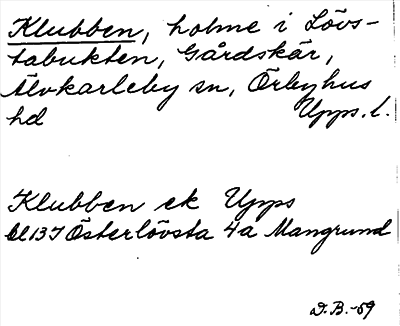 Klubben, holme i Lövs-
tabukten, Gårdskär,
Älvkarleby sn, Örbyhus
hd Upps. l.
Klubben ek Upps
bl 137 Österlövsta 4a Mangrund
D.B.-59